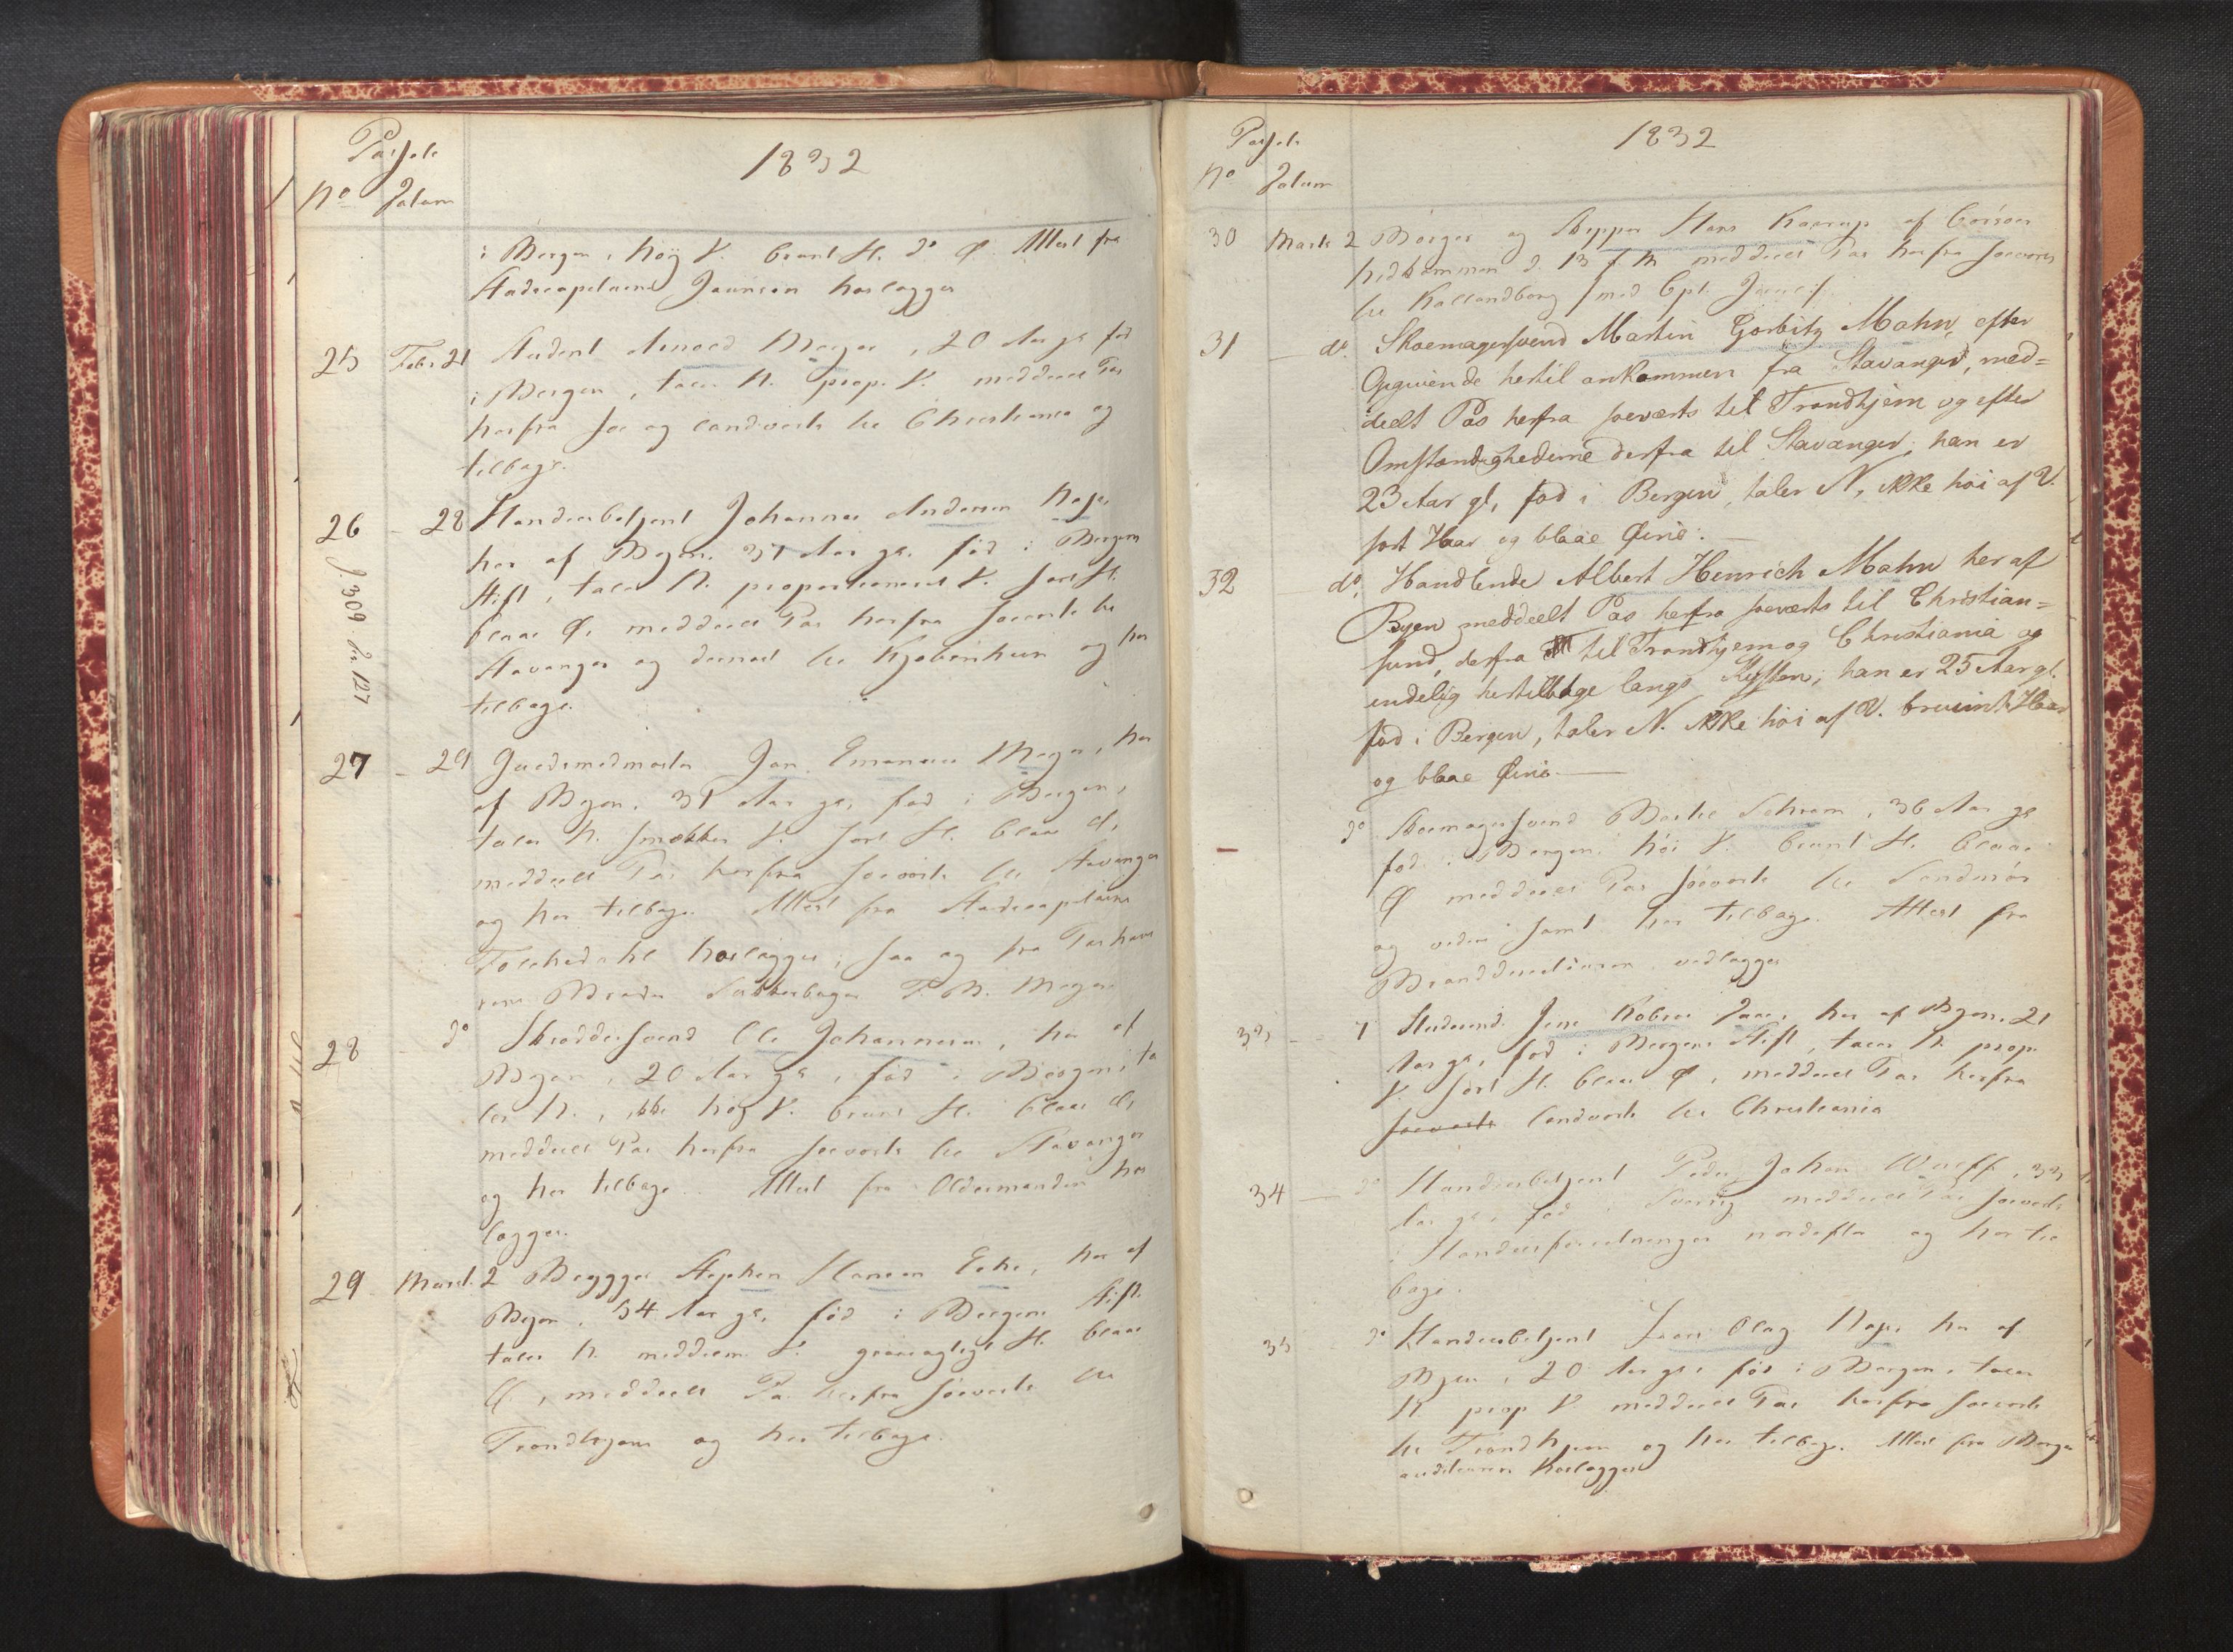 Passets
No Datum
1832
i Bergen, høy V. bruunt H. do Ø. Attest fra
Stadscapelaene Jaunsen herlagger
25 Febr 21 Student Arnold Meyer, 20 Aar gl. fød
i Bergen, taler N. prop. V. meddeelt Pas
herfra søe og landverts til Christiania og
tilbage.
26 - 28 Handelsbetjent Johannes Andersen
her af Byen, 37 Aar gl. fød i Bergens
Stift, taler N. proportioneret V. sort H.
blaae Ø. meddeelt Pas herfra søeverts til
Stavanger og dernest til Kjøbenhavn og her
tilbage.
J. 309. Pr. 127
27 - 29 Guldsmedmester Jan Emanuel Meyer, her
af Byen, 31 Aar gl, fød i Bergen,
taler N. smækker V. sort H. blaae Ø,
meddeelt Pas herfra søeverts til Stavanger
og her tilbage. Attest fra Stadscapelaene
herlagger; saa og fra Pashave
rens Broder Meyer
28 do Skreddersvend Ole Johannesen, her af
Byen, 20 Aar gl, fød i Bergen, ta
ler N., ikke høy V. bruunt H. blaae Ø,
meddeelt Pas herfra søeverts til Stavanger
og her tilbage. Attest fra Oldermanden her
lagger.
29 Marts 2 Brygger Stephen Hansen her af
Byen, 54 Aar gl, fød i Bergens Stift
taler N. meddeelt Pas herfra søeverts til
Trondhjem og her tilbage.
Passets
No Datum
1832
30 Marts 2 Borger og Skipper Hans Kaarup af
hidkommen d. 13 f. M. meddeelt Pas herfra søeverts
til Kallundborg med Cpt.
31 — do. Skoemagersvend Martin Gorbitz Mahn, efter
Opgivende hertil ankommen fra Stavanger, med=
deelt Pas herfra søeverts til Trondhjem og efter
Omstændighederne derfra til Stavanger; han er
23 Aar gl, fød i Bergen, taler N, ikke høi af V.
sort Haar og blaae Øine. —
32 — do. Handlende Albert Henrich Mahn her af
Byen meddeelt Pas herfra søeverts til Christian=
sund, derfra til Trondhjem og Christiania og
endelig hertilbage langs Kysten; han er 25 Aar gl.
fød i Bergen, taler N. ikke høi af V. bruunt Haar
og blaae Øine. —
do Skoemagersvend Schram, 36 Aar gl
fød i Bergen, høi V. bruunt H. blaae
Ø meddeelt Pas søeverts til Sundmør
og videre samt her tilbage. Attest fra
vedlagger
33 - - 7 Studerende Jens her af Byen, 21
Aar gl, fød i Bergens Stift, taler N. prop.
V. sort H. blaae Ø, meddeelt Pas herfra
søeverts landverts til Christiania
34 — do Handelsbetjent Peder Johan 33
Aar gl, fød i Sverrig meddeelt Pas søeverts
i Handelsforretninger nordefter og her til
bage.
35 do Handelsbetjent Olay her af
Byen, 20 Aar gl, fød i Bergen, taler
N prop V meddeelt Pas herfra søeverts
til Trondhjem og her tilbage. Attest fra
herlagger